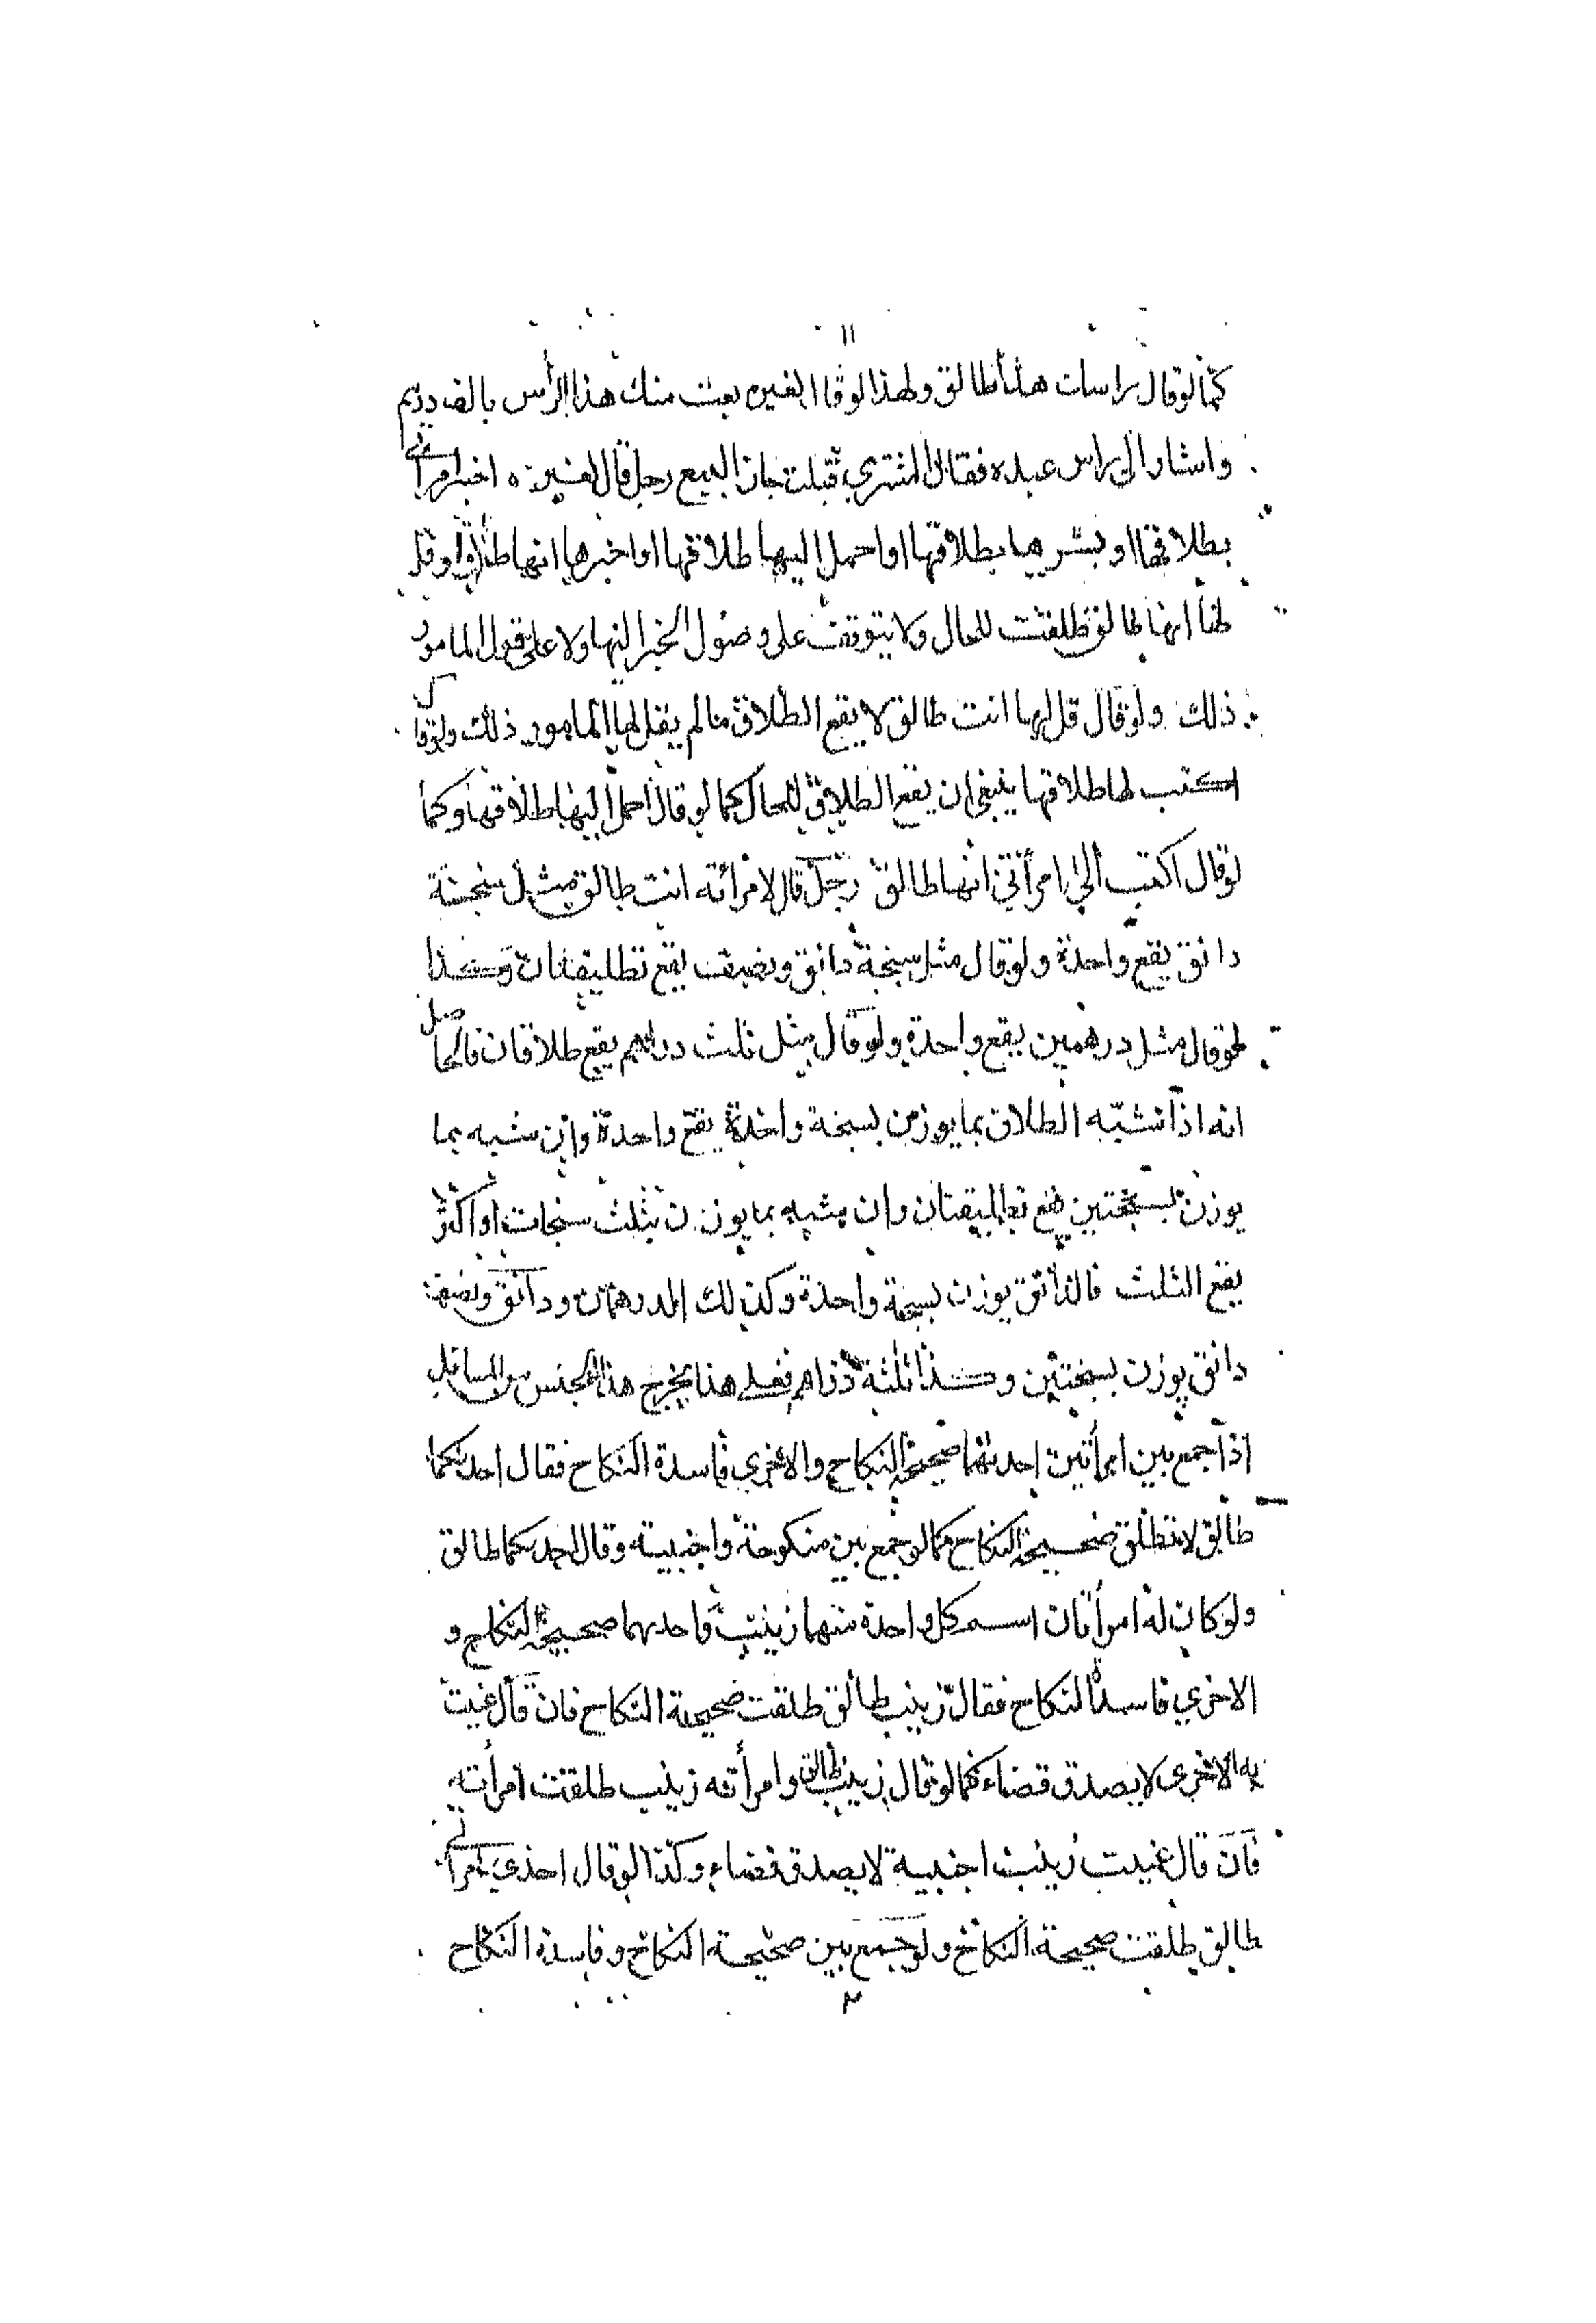 ١١
كما لو قال راسك هذا طالق ولهذا لو قال لغيره بعت منك هذا الراس بالف درهم
واشار الى راس عبده فقال المشتري قبلت جاز البيع رجل قال لغيره اخبر امرأتي
بطلاقها او بشرها بطلاقها او احمل اليها طلاقها او اخبرها انها طالق او قل
لها انها طالق طلقت للحال ولا يتوقف على وصول الخبر اليها ولا على قول المامور
ذلك ولو قال قل لها انت طالق لا يقع الطلاق ما لم يقل لها المامور ذلك ولو قال
اكتب لها طلاقها ينبغي ان يقع الطلاق للحال كما لو قال احمل اليها طلاقها وكما
لو قال اكتب الى امرأتي انها طالق رجل قال لامرأته انت طالق مثل سنجة
دانق يقع واحدة ولو قال مثل سنجة دانق ونصف يقع تطليقتان وكذا
لو قال مثل درهمين يقع واحدة ولو قال مثل ثلث دراهم يقع طلاقان فالحاصل
انه اذا شبه الطلاق بما يوزن بسنجة واحدة يقع واحدة وان شبه بما
يوزن بسنجتين يقع تطليقتان وان شبه بما يوزن بثلث سنجات او اكثر
يقع الثلث فالدانق يوزن بسنجة واحدة وكذلك الدرهمان ودانق ونصف
دانق يوزن بسنجتين وكذا ثلثة دراهم فعلى هذا يخرج هذا الجنس من المسائل
اذا جمع بين امرأتين احدىهما صحيحة النكاح والاخرى فاسدة النكاح فقال احدىكما
طالق لا تطلق صحيحة النكاح كما لو جمع بين منكوحة واجنبية وقال احدىكما طالق
ولو كان له امرأتان اسم كل واحدة منهما زينب واحدىهما صحيحة النكاح و
الاخرى فاسدة النكاح فقال زينب طالق طلقت صحيحة النكاح فان قال عنيت
به الاخرى لا يصدق قضاء كما لو قال زينب طالق وامرأته زينب طلقت امرأته
فان قال عنيت زينب اجنبية لا يصدق قضاء وكذا لو قال احدى امرأتي
طالق طلقت صحيحة النكاح ولو جمع بين صحيحة النكاح وفاسدة النكاح
٢